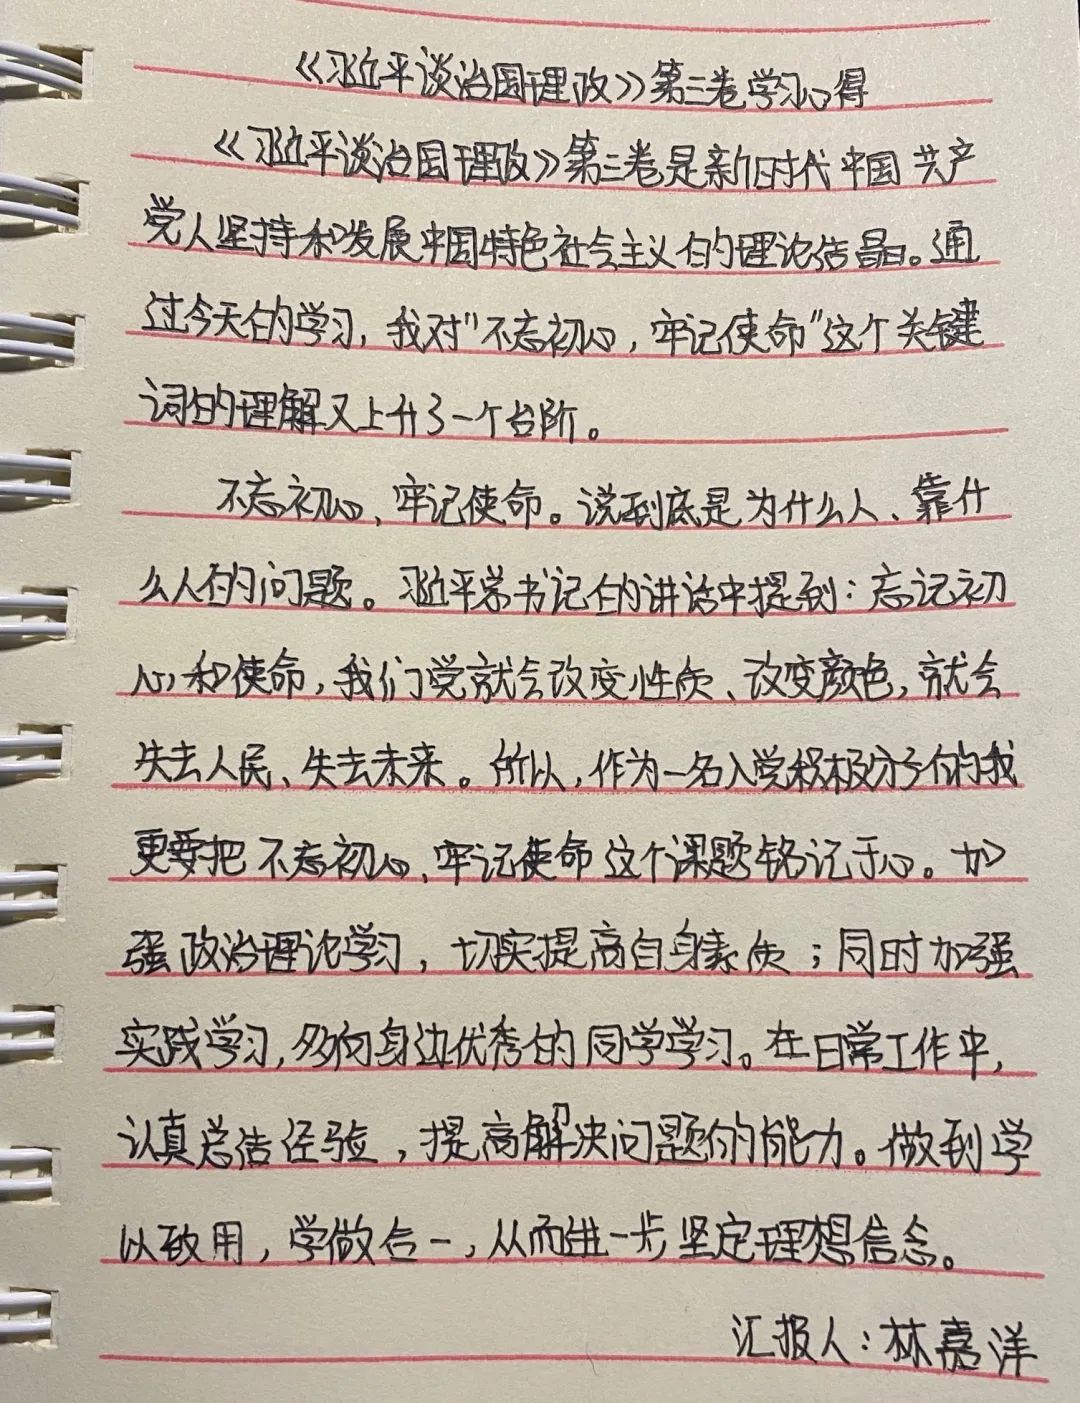 《习近平谈治国理政》第三卷学习心得
《习近平谈治国理政》第三卷是新时代中国共产
党人坚持和发展中国特色社会主义的理论结晶。通
过今天的学习，我对“不忘初心，牢记使命”这个关键
词的理解又上升了一个台阶。
不忘初心、牢记使命。说到底是为什么人、靠什
么人的问题。习近平总书记的讲话中提到：忘记初
心和使命，我们党就会改变性质、改变颜色，就会
失去人民、失去未来。所以，作为一名入党积极分子的我
更要把不忘初心、牢记使命这个课题铭记于心。加
强政治理论学习，切实提高自身素质；同时加强
实践学习，多向身边优秀的同学学习。在日常工作中，
认真总结经验，提高解决问题的能力。做到学
以致用，学做合一，从而进一步坚定理想信念。
汇报人：林嘉洋